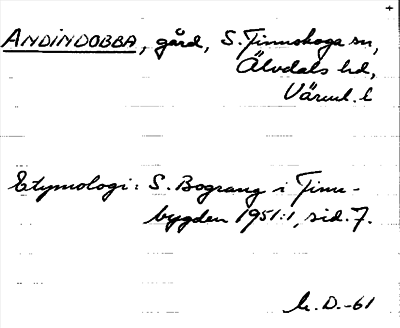 ANDINDOBBA, gård, S. Finnskoga sn,
Älvdals hd,
Värml. l
Etymologi: S. Bograng i Finn-
bygden 1951:1, sid. 7.
h. D.-61